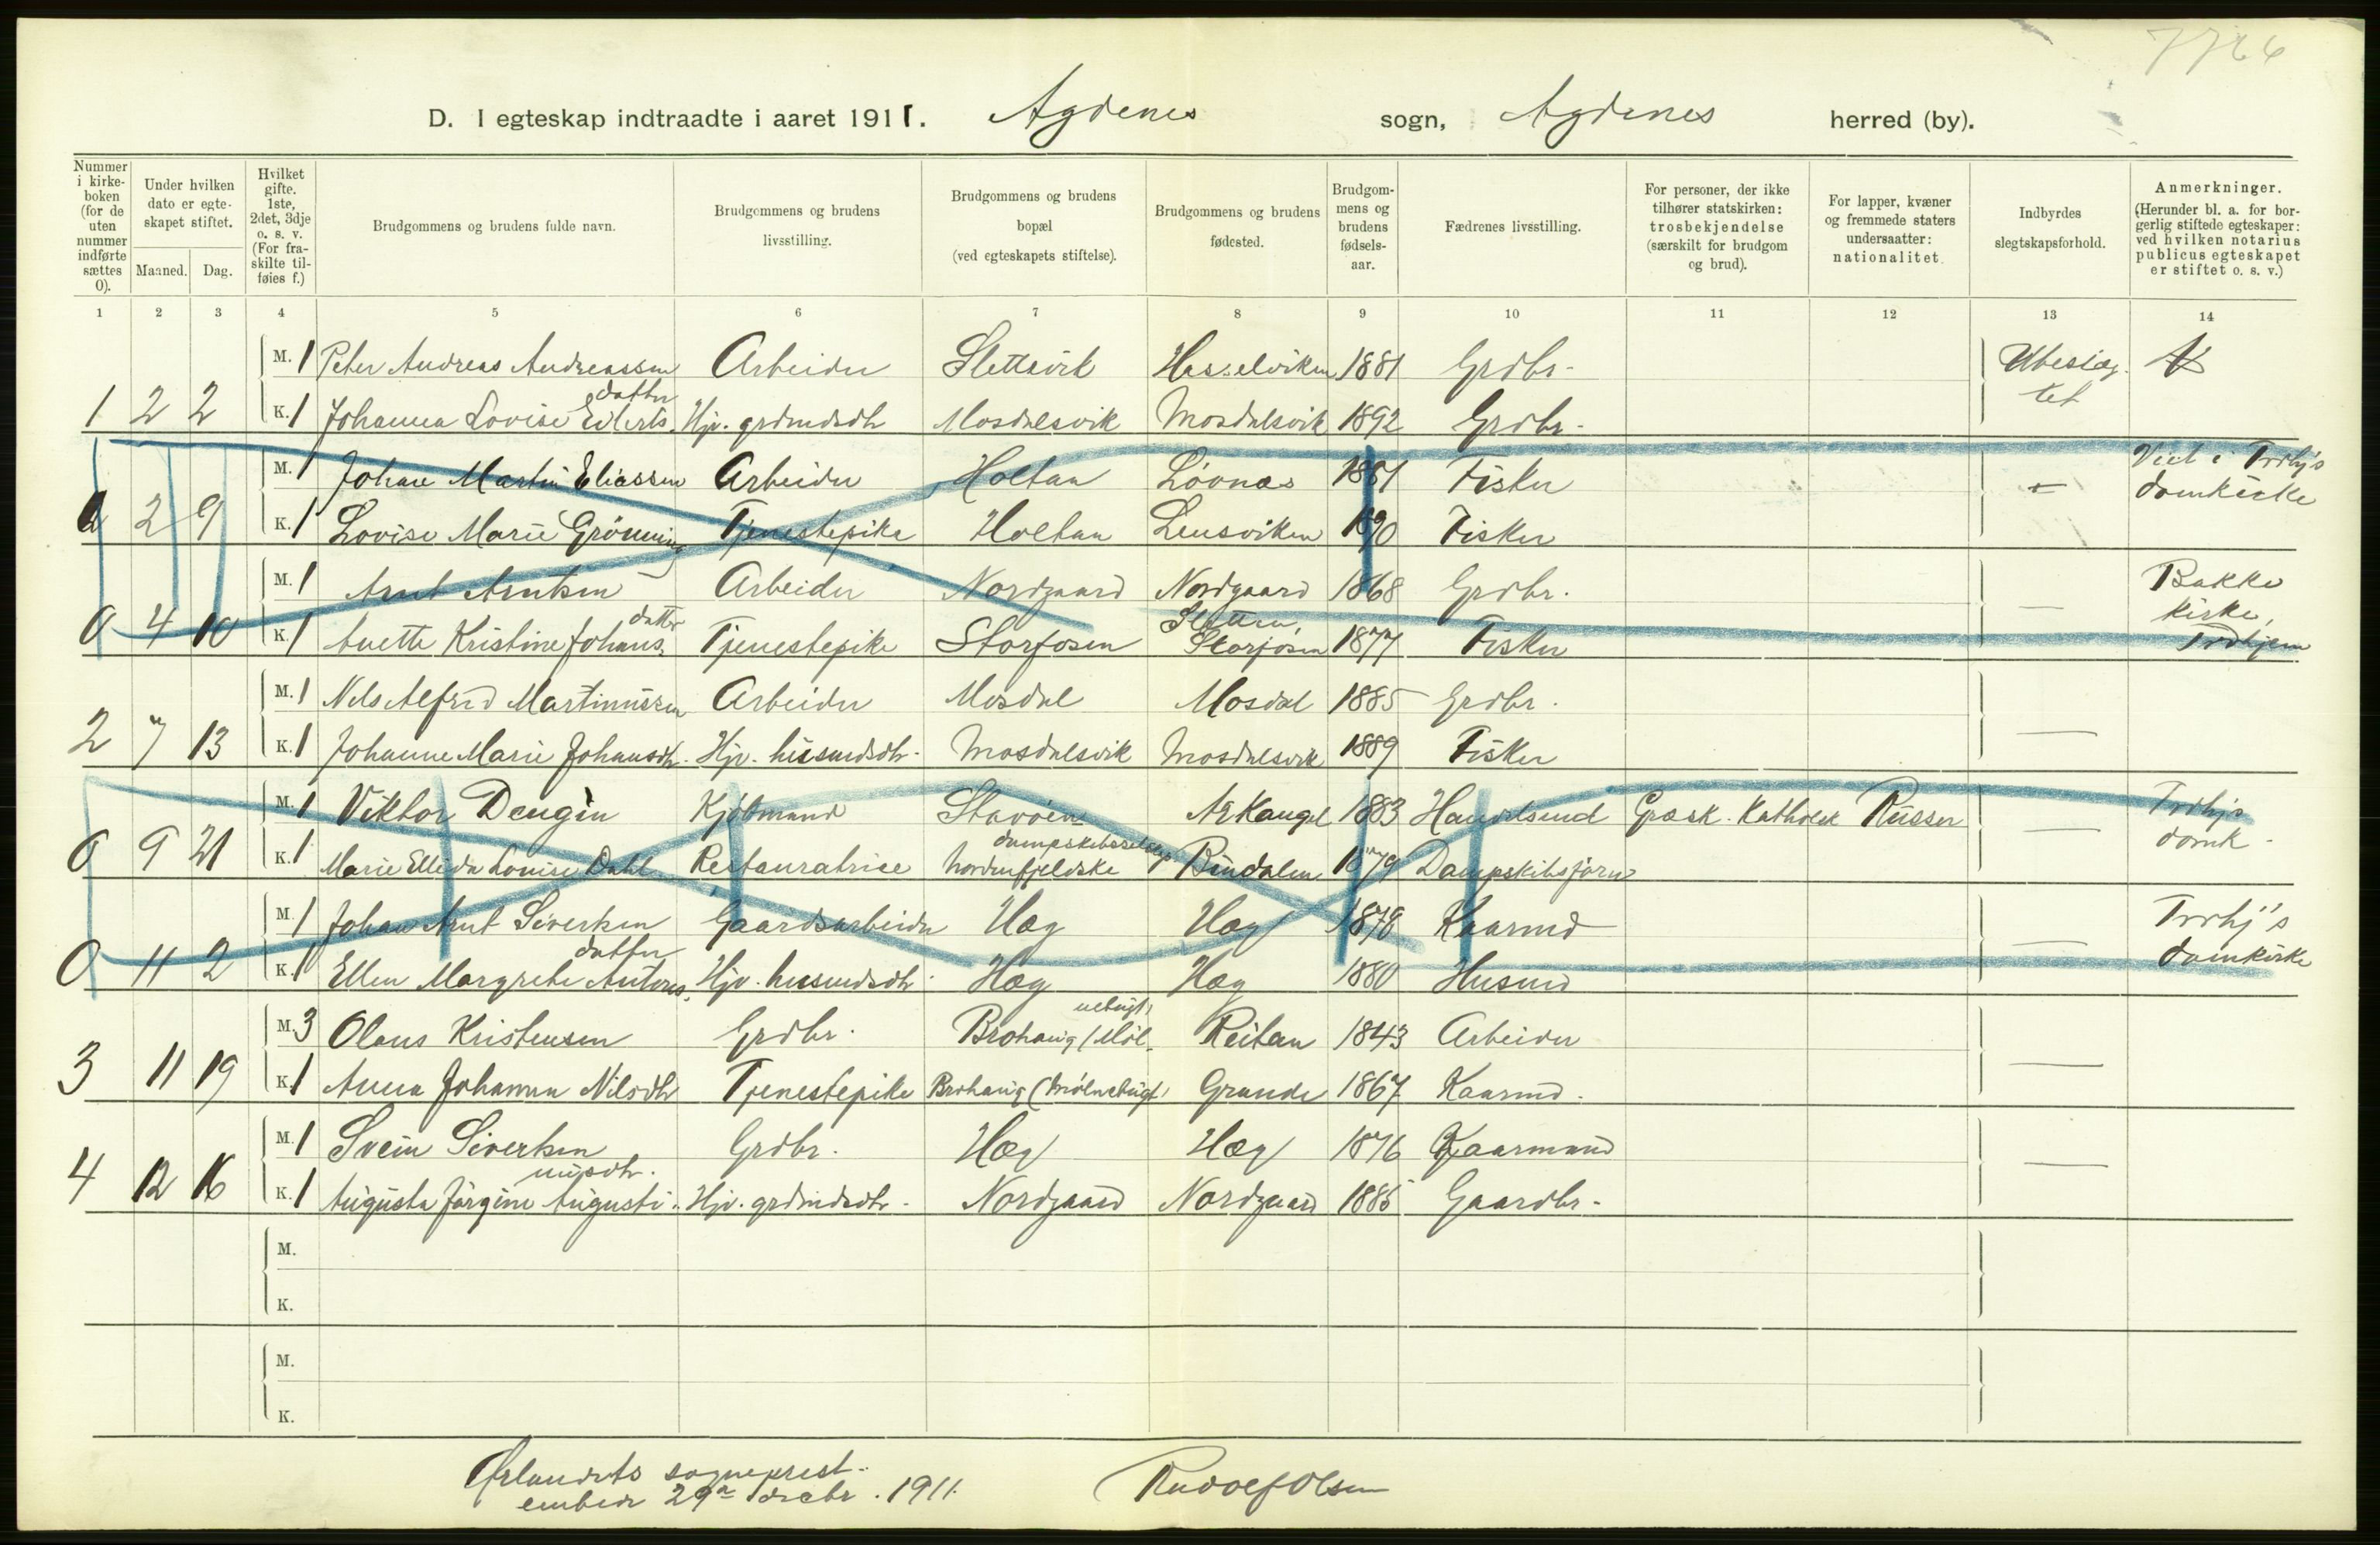 7766
D. I egteskap indtraadte i aaret 1911. Agdenes sogn, Agdenes herred (by).
Nummer i kirke-boken (for de uten nummer indførte sættes 0).
Under hvilken dato er egte-skapet stiftet.
Maaned. Dag.
Hvilket gifte. 1ste, 2det, 3dje o. s. v. (For fra-skilte til-føies f.)
Brudgommens og brudens fulde navn.
Brudgommens og brudens livsstilling.
Brudgommens og brudens bopæl (ved egteskapets stiftelse).
Brudgommens og brudens fødested.
Brudgom-mens og brudens fødsels-aar.
Fædrenes livsstilling.
For personer, der ikke tilhører statskirken: trosbekjendelse (særskilt for brudgom og brud).
For lapper, kvæner og fremmede staters undersaatter: nationalitet.
Indbyrdes slegtskapsforhold.
Anmerkninger. (Herunder bl. a. for bor-gerlig stiftede egteskaper: ved hvilken notarius publicus egteskapet er stiftet o. s. v.)
1 2 3 4 5 6 7 8 9 10 11 12 13 14
M. 1 Peter Andreas Andreassen Arbeider Slettvik Hasselviken 1881 Grdbr. Ubeslæg-tet
1 2 2 K. 1 Johanna Lovise Eilerts.datter Hjv. grdmdsdtr Mosdalsvik Mosdalsvik 1892 Grdbr.
M. 1 Johan Martin Eliassen Arbeider Holtan Lövnæs 1881 Fisker Viet i Trdhj's domkirke
2 9 K. 1 Lovise Marie Grönning Tjenestepike Holtan Lensviken 1890 Fisker
M. 1 Arnt Arntsen Arbeider Nordgaard Nordgaard 1868 Grdbr. Bakke kirke, Trdhjem
0 4 10 K. 1 Anette Kristine Johans.datter Tjenestepike Storfosen Storfosen 1877 Fisker
M. 1 Nils Alfred Martinussen Arbeider Mosdal Mosdal 1885 Grdbr.
2 7 13 K. 1 Johanne Marie Johansdtr. Hjv. husmdsdtr. Mosdalsvik Mosdalsvik 1889 Fisker
M. 1 Viktor Dengin Kjöbmand Stavöen Arkangel 1883 Handelsmd Græsk-Katholsk Russer Trdhj's domk.
0 9 21 K. 1 Marie Elleda Louise Dahl Restauratrice Nordenfjeldske dampskibsselskap Bindalen 1879 Dampskibsförer
M. 1 Johan Arnt Sivertsen Gaardsarbeider Hæg Hæg 1878 Kaarmd Trdhj's domkirke
0 11 2 K. 1 Ellen Margrethe Antons.datter Hjv. husmdsdtr. Hæg Hæg 1880 Husmd
M. 3 Olaus Kristensen Grdbr. Brohaug (Möl-nebugt) Reitan 1843 Arbeider
3 11 19 K. 1 Anna Johanna Nilsdtr Tjenestepike Brohaug (Mölnebugt) Grande 1867 Kaarmd.
M. 1 Svein Sivertsen Grdbr. Hæg Hæg 1876 Kaarmand
4 12 16 K. 1 Augusta Jörgine Augusti-nusdtr. Hjv. grdmdsdtr. Nordgaard Nordgaard 1885 Gaardbr.
M.
K.
M.
K.
Ørlandets sogneprest-
embede 29de decbr. 1911.
Rudolf Olsen